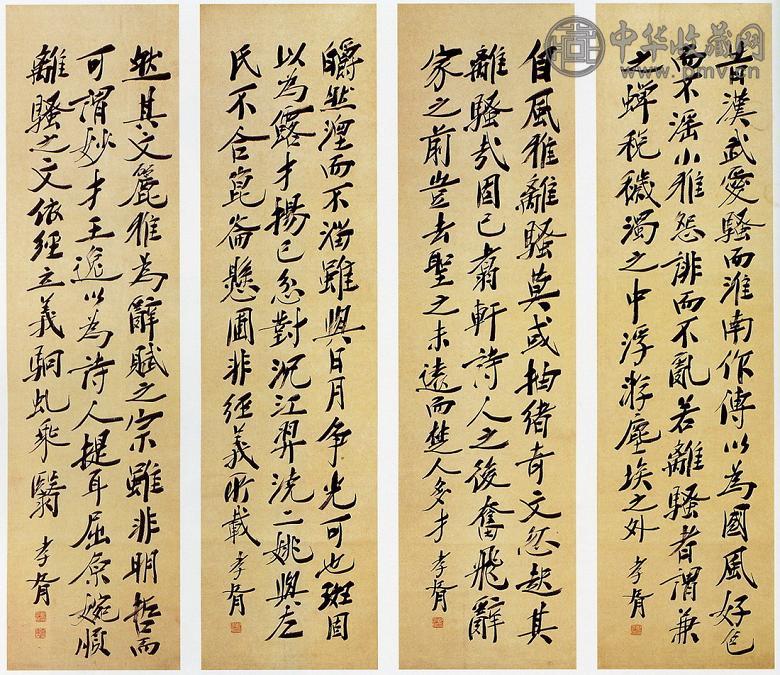 中华收藏网
www.pmv.cn
昔漢武愛騷而淮南作傳以為國風好色
而不淫小雅怨誹而不亂若離騷者謂兼
之蟬稅穢濁之中浮游塵埃之外 孝胥
自風雅離騷莫或抽緒奇文忽起其
離騷哉固已翥軒詩人之後奮飛辭
家之前豈去聖之未遠而楚人多才 孝胥
皭然涅而不淄雖與日月爭光可也班固
以為露才揚己忿對沉江羿澆二姚與左
氏不合崑崙懸圃非經義所載 孝胥
然其文麗雅為辭賦之宗雖非明哲而
可謂妙才王逸以為詩人提耳屈原婉順
離騷之文依經立義駟虬乘翳 孝胥